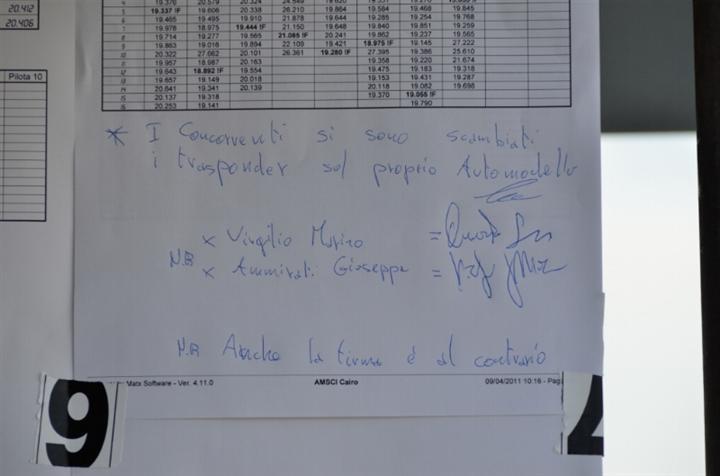 20.412
20.406
Pilota 10
5 19.337 IF 19.606 20.338 26.210 19.864 19.584 19.468 19.845
6 19.465 19.495 19.910 21.878 19.644 19.285 19.254 19.768
7 19.978 18.975 19.444 IF 21.150 19.648 19.840 19.851 19.259
8 19.714 19.277 19.565 21.085 IF 20.241 19.862 19.237 19.565
9 19.863 19.018 19.894 22.109 19.421 18.975 IF 19.145 27.222
10 20.322 27.662 20.101 26.361 19.280 IF 27.395 19.386 25.610
11 19.957 18.987 20.163 19.358 19.220 21.674
12 19.643 18.892 IF 19.554 19.475 19.183 19.318
13 19.657 19.149 20.018 19.153 19.431 19.287
14 20.641 19.341 20.139 20.118 19.082 19.698
15 20.137 19.318 19.370 19.055 IF
16 20.253 19.141 19.790
* I Concorrenti si sono scambiati
i trasponder sul proprio Automodello
x Virgilio Marino =
N.B x Ammirati Giuseppe =
N.B Anche la firma è al contrario
Matx Software - Ver. 4.11.0 AMSCI Cairo 09/04/2011 10:16 - Pag
9 7